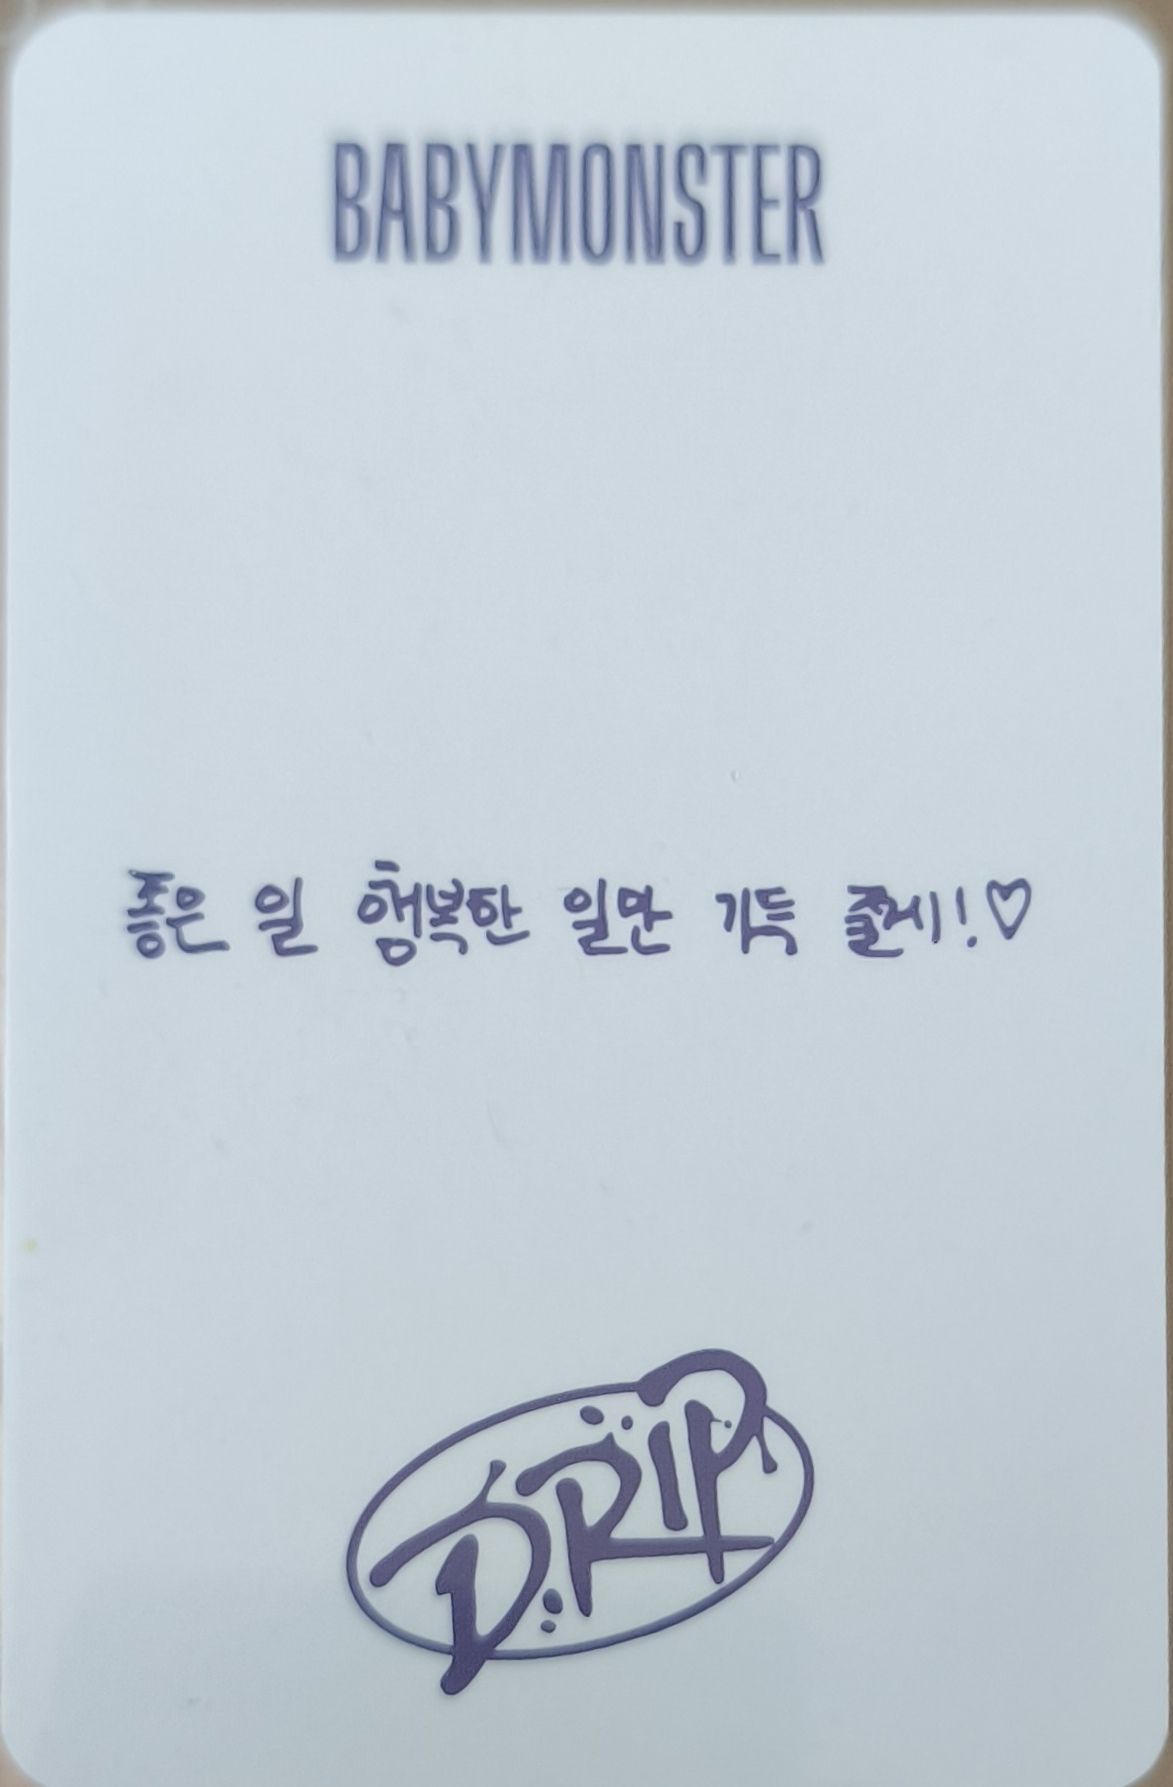 BABYMONSTER
좋은 일 행복한 일만 가득 하시!♡
DRIP